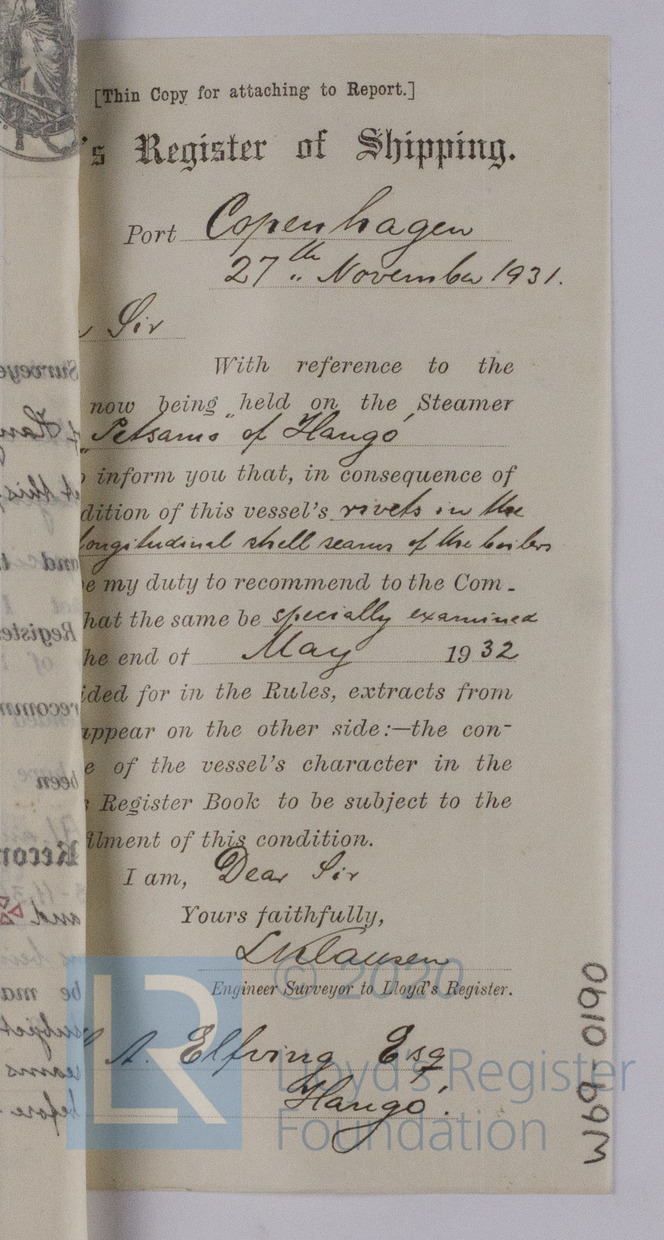 [Thin Copy for attaching to Report.]
's Register of Shipping.
Port Copenhagen
27th November 1931.
Sir
With reference to the
now being held on the Steamer
"Petsamo" of Hangö
inform you that, in consequence of
dition of this vessel's rivets in the
longitudinal shell seams of the boilers
e my duty to recommend to the Com-
hat the same be specially examined
he end of May 1932
ided for in the Rules, extracts from
appear on the other side:—the con-
e of the vessel's character in the
s Register Book to be subject to the
ilment of this condition.
I am, Dear Sir
Yours faithfully,
Klausen
Engineer Surveyor to Lloyd's Register.
A. Elfving Esq
Hangö.
© 2020
Lloyd's Register
Foundation
LR
W69-0190